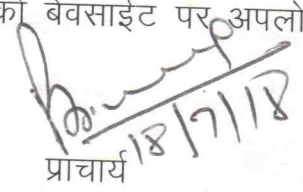 को बेवसाईट पर अपलो
18/7/18
प्राचार्य